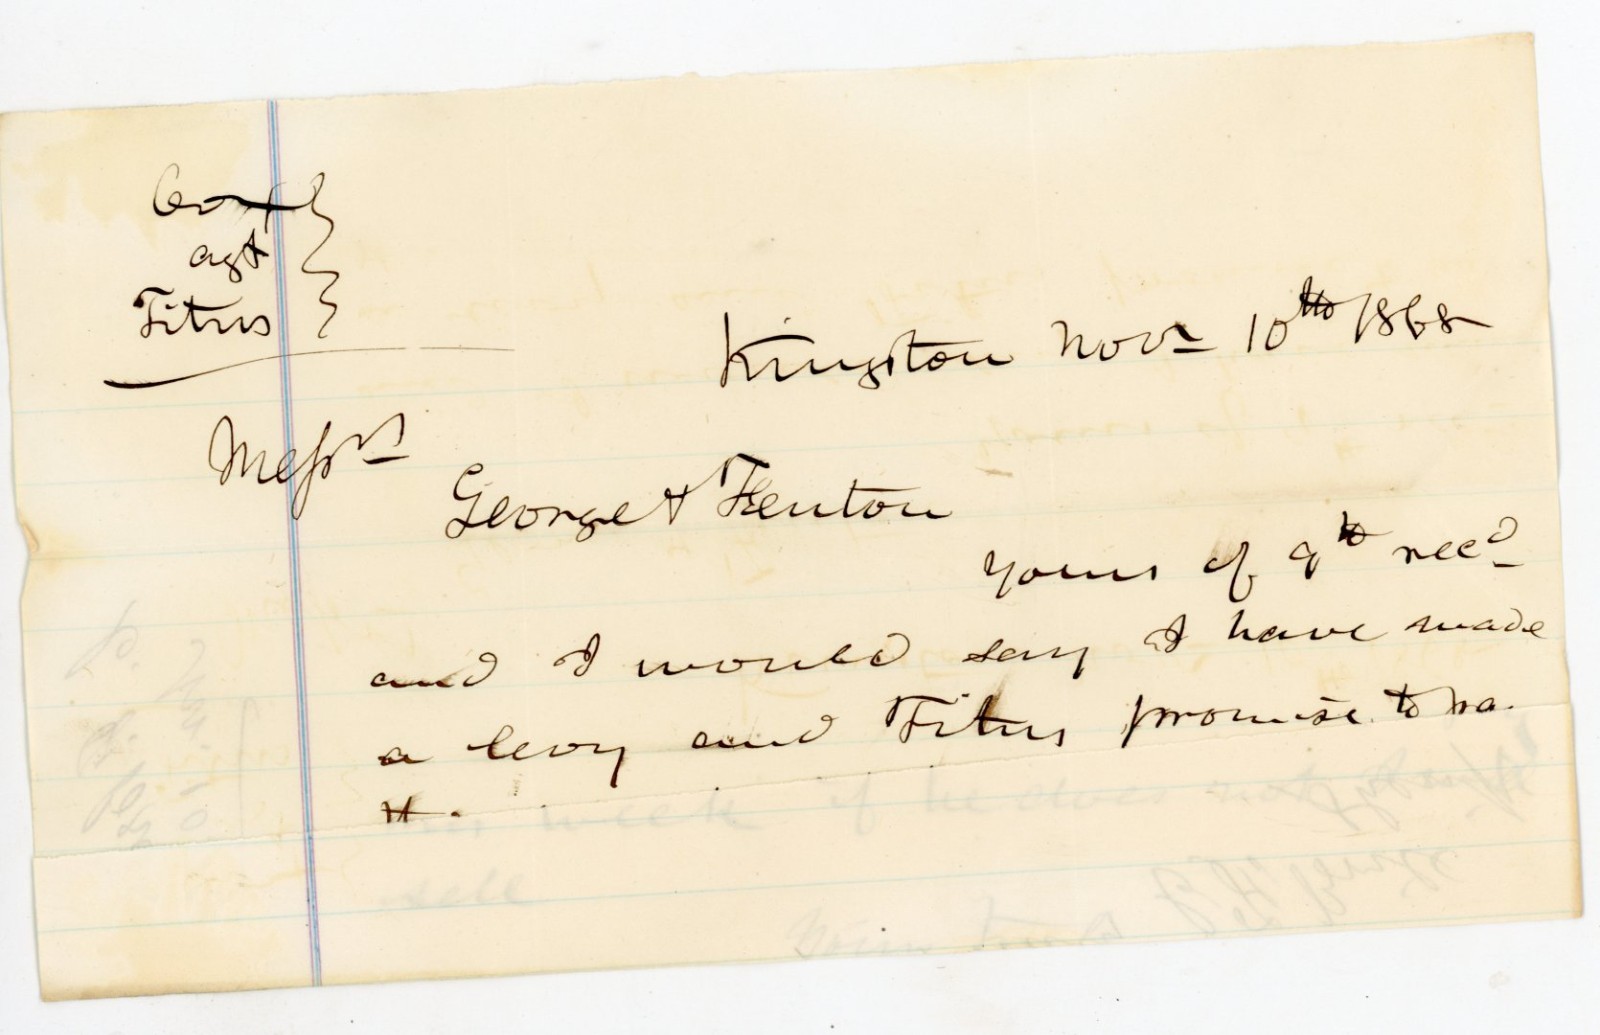 Cox
agt
Titus
Kingston Novr 10th 1868
Messrs
George & Fenton
Yours of 9th recd
and I would say I have made
a levy and Titus promise to pa
this week if he does not
sell